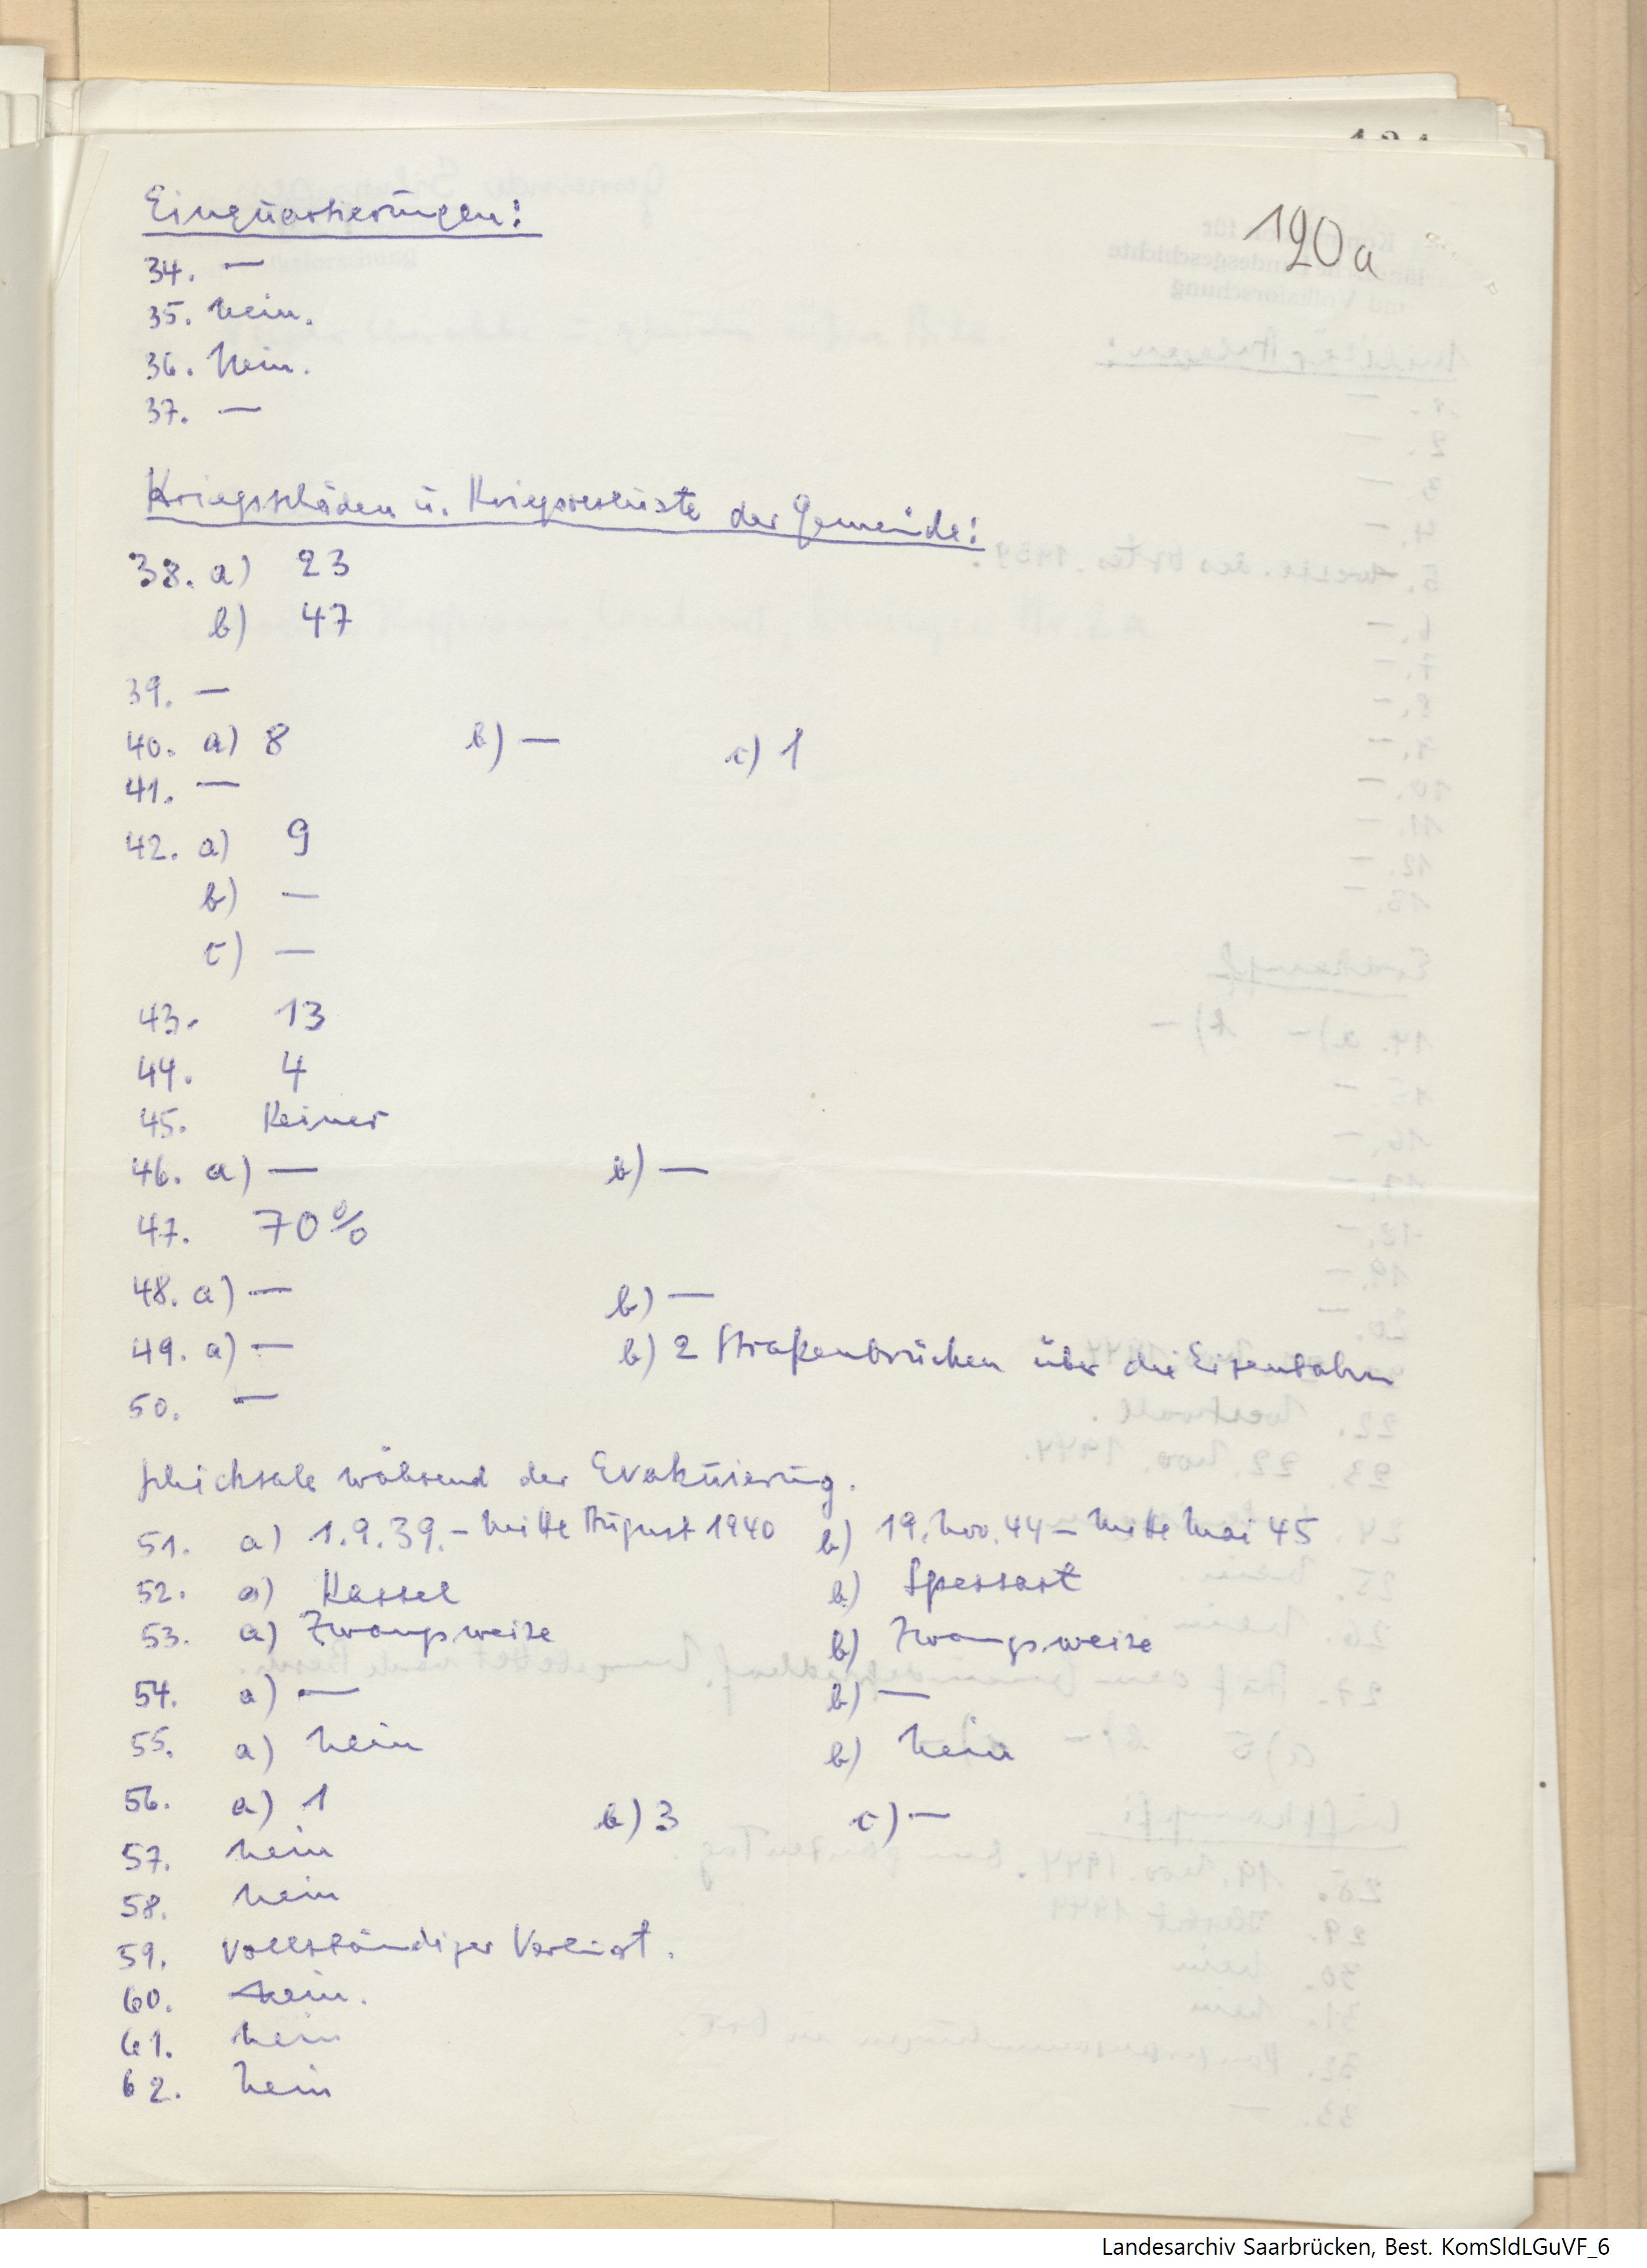 120a
Einquartierungen:
34. —
35. Nein.
36. Nein.
37. —
Kriegsschäden u. Kriegsverluste der Gemeinde:
38. a) 23
b) 47
39. —
40. a) 8 b) — c) 1
41. —
42. a) 9
b) —
c) —
43. 13
44. 4
45. Keiner
46. a) — b) —
47. 70%
48. a) — b) —
49. a) — b) 2 Straßenbrücken über die Eisenbahn
50. —
Schicksale während der Evakuierung.
51. a) 1.9.39. – Mitte August 1940 b) 19. Nov. 44 – Mitte Mai 45
52. a) Kassel b) Spessart
53. a) Zwangsweise b) Zwangsweise
54. a) — b) —
55. a) Nein b) Nein
56. a) 1 b) 3 c) —
57. Nein
58. Nein
59. Vollständiger Verlust.
60. Nein.
61. Nein
62. Nein
Landesarchiv Saarbrücken, Best. KomSldLGuVF_6